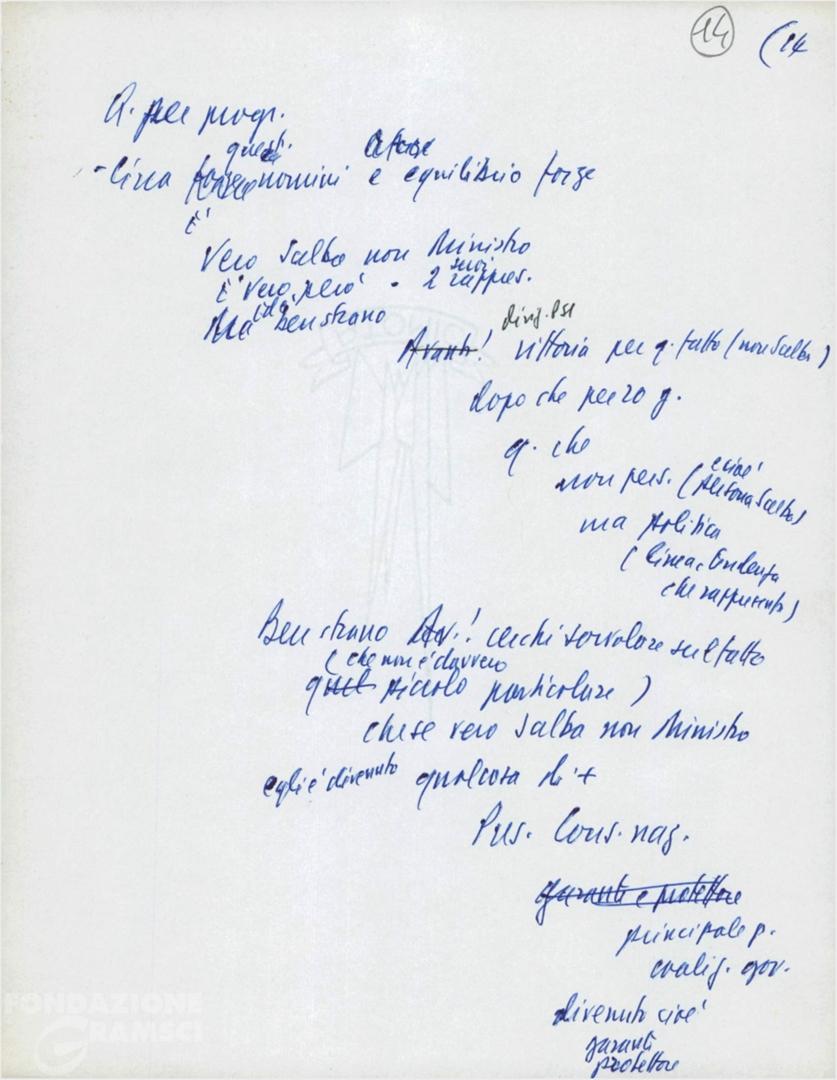 14 (14
Q. per progr.
quest.
- Circa nomini e equilibrio forze
è
Vero Scelba non Ministro
è vero però - 2 suoi rappres.
Ma ben strano
Avanti! dirig. PSI vittoria per q. fatto (non Scelba)
dopo che per 20 g.
q. che
non pers. (cioè persona Scelba)
ma politica
(linea, tendenza
che rappresenta)
Ben strano Av.! cerchi sorvolare sul fatto
(che non è davvero
quel piccolo particolare)
che se vero Scelba non Ministro
egli è divenuto qualcosa di +
Pres. Cons. naz.
garante e protettore
principale p.
coaliz. gov.
divenuto cioè
garante
protettore
FONDAZIONE
GRAMSCI